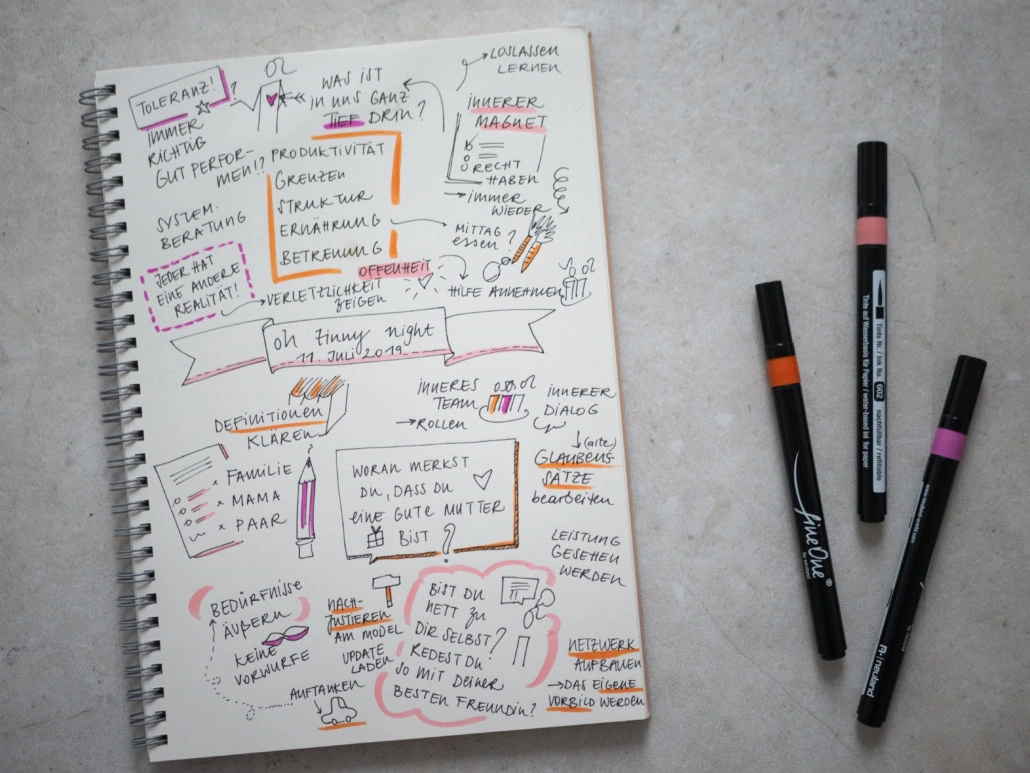 TOLERANZ!
IMMER
RICHTIG
GUT PERFOR-
MEN!?
?
WAS IST
in UNS GANZ
TIEF DRIN?
LOSLASSEN
LERNEN
INNERER
MAGNET
RECHT
HABEN
→ immer
WIEDER
PRODUKTIVITÄT
GRENZEN
STRUKTUR
ERNÄHRUNG
BETREUUNG
MITTAG
essen?
SYSTEM.
BERATUNG
JEDER HAT
EINE ANDERE
REALITÄT!
OFFENHEIT
VERLETZLICHKEIT
ZEIGEN
HILFE ANNEHMEN
oh zinny night
11. JULI 2019
DEFINITIONEN
KLÄREN
INNERES
TEAM
→ ROLLEN
INNERER
DIALOG
(alte)
GLAUBENS
SÄTZE
bearbeiten
x FAMILIE
x MAMA
x PAAR
WORAN MERKST
DU, DASS DU
eine GUTE MUTTER
BIST ?
LEISTUNG
GESEHEN
WERDEN
BEDÜRFNISSE
ÄUßERN
KEINE
VORWÜRFE
NACH-
JUSTIEREN
AM MODEL
UPDATE
LADEN
AUFTANKEN
BIST DU
NETT ZU
DIR SELBST?
REDEST DU
so MIT DEINER
BESTEN FREUNDIN?
NETZWERK
AUFBAUEN
→ DAS EIGENE
VORBILD WERDEN
Tinte Nr. / Ink No. 602 nachfüllbar / refillable
Tinte auf Wasserbasis für Papier / water-based ink for paper
fineOne®
neuland